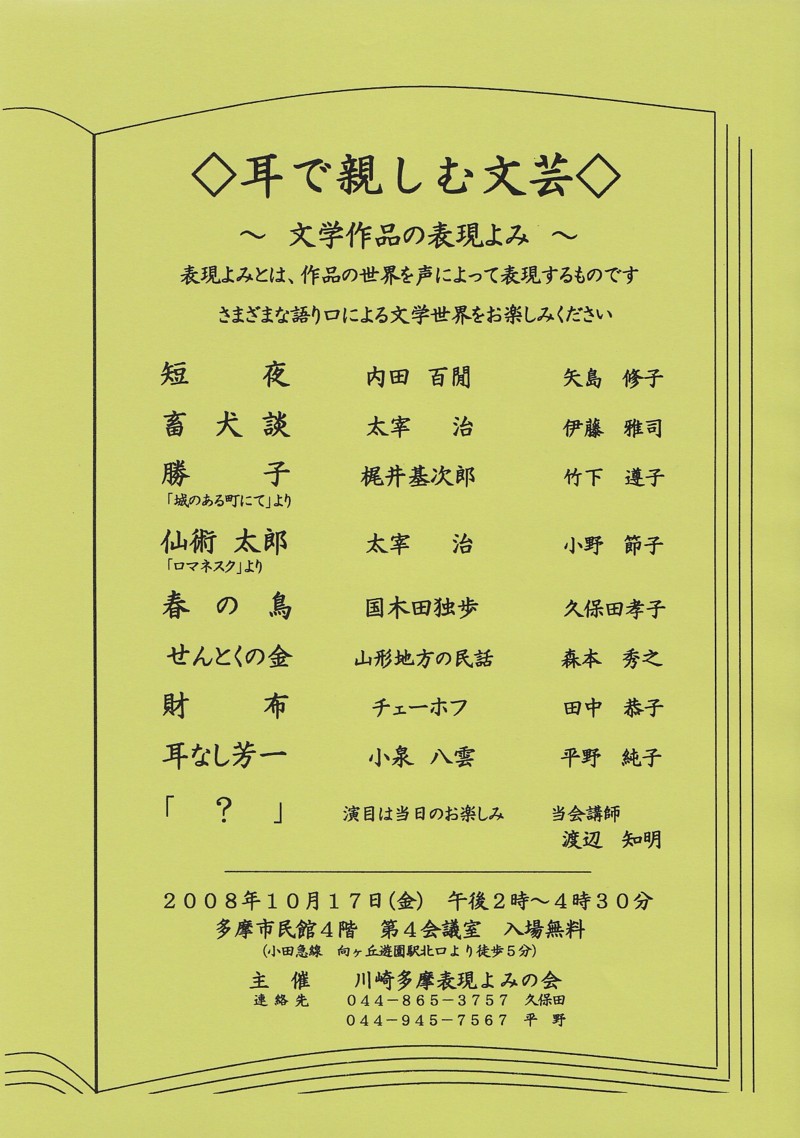 ◇耳で親しむ文芸◇
～ 文学作品の表現よみ ～
表現よみとは、作品の世界を声によって表現するものです
さまざまな語り口による文学世界をお楽しみください
短夜 内田 百閒 矢島 修子
畜犬談 太宰 治 伊藤 雅司
勝子 梶井基次郎 竹下 遵子
「城のある町にて」より
仙術 太郎 太宰 治 小野 節子
「ロマネスク」より
春の鳥 国木田独歩 久保田孝子
せんとくの金 山形地方の民話 森本 秀之
財布 チェーホフ 田中 恭子
耳なし芳一 小泉 八雲 平野 純子
「 ？ 」 演目は当日のお楽しみ 当会講師
渡辺 知明
２００８年１０月１７日(金) 午後２時～４時３０分
多摩市民館４階 第４会議室 入場無料
(小田急線 向ヶ丘遊園駅北口より徒歩５分)
主催 川崎多摩表現よみの会
連絡先 ０４４－８６５－３７５７ 久保田
０４４－９４５－７５６７ 平野